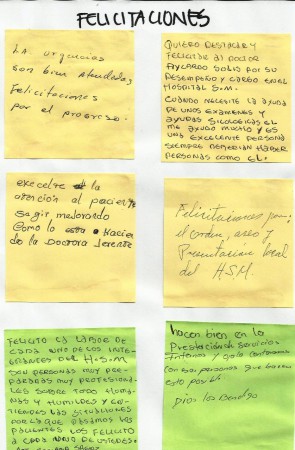 FELICITACIONES
LA urgencias
son bien atendidas,
Felicitaciones
por el progreso.
QUIERO DESTACAR Y
FELICITAR AL DOCTOR
AYCARDO SOLIS POR SU
DESEMPEÑO Y CARGO EN EL
HOSPITAL S.M.
CUANDO NECESITE LA AYUDA
DE UNOS EXAMENES Y
AYUDAS SICOLOGICAS EL
ME AYUDO MUCHO Y ES
UNA EXCELENTE PERSONA
SIEMPRE DEBERIAN HABER
PERSONAS COMO EL.
la
atencion al paciente
Segir mejorando
Como lo esta Hacien
do la Doctora Jerente
Felicitaciones por
el orden, aseo y
Presentación local
del HSM.
FELICITO LA LABOR DE
CADA UNO DE LOS INTE
GRANTES DEL H.S.M
SON PERSONAS MUY PRE-
PARADAS MUY PROFESIONA-
LES SOBRE TODO HUMA-
NAS Y HUMILDES Y EN-
TIENDEN LAS SITUACIONES
POR LA QUE PASAMOS LOS
PACIENTES LOS FELICITO
A CADA UNO DE USTEDES.
hacen bien en la
Prestación de Servicios
y
con personas que hacen
esto posible.
Dios los Bendiga